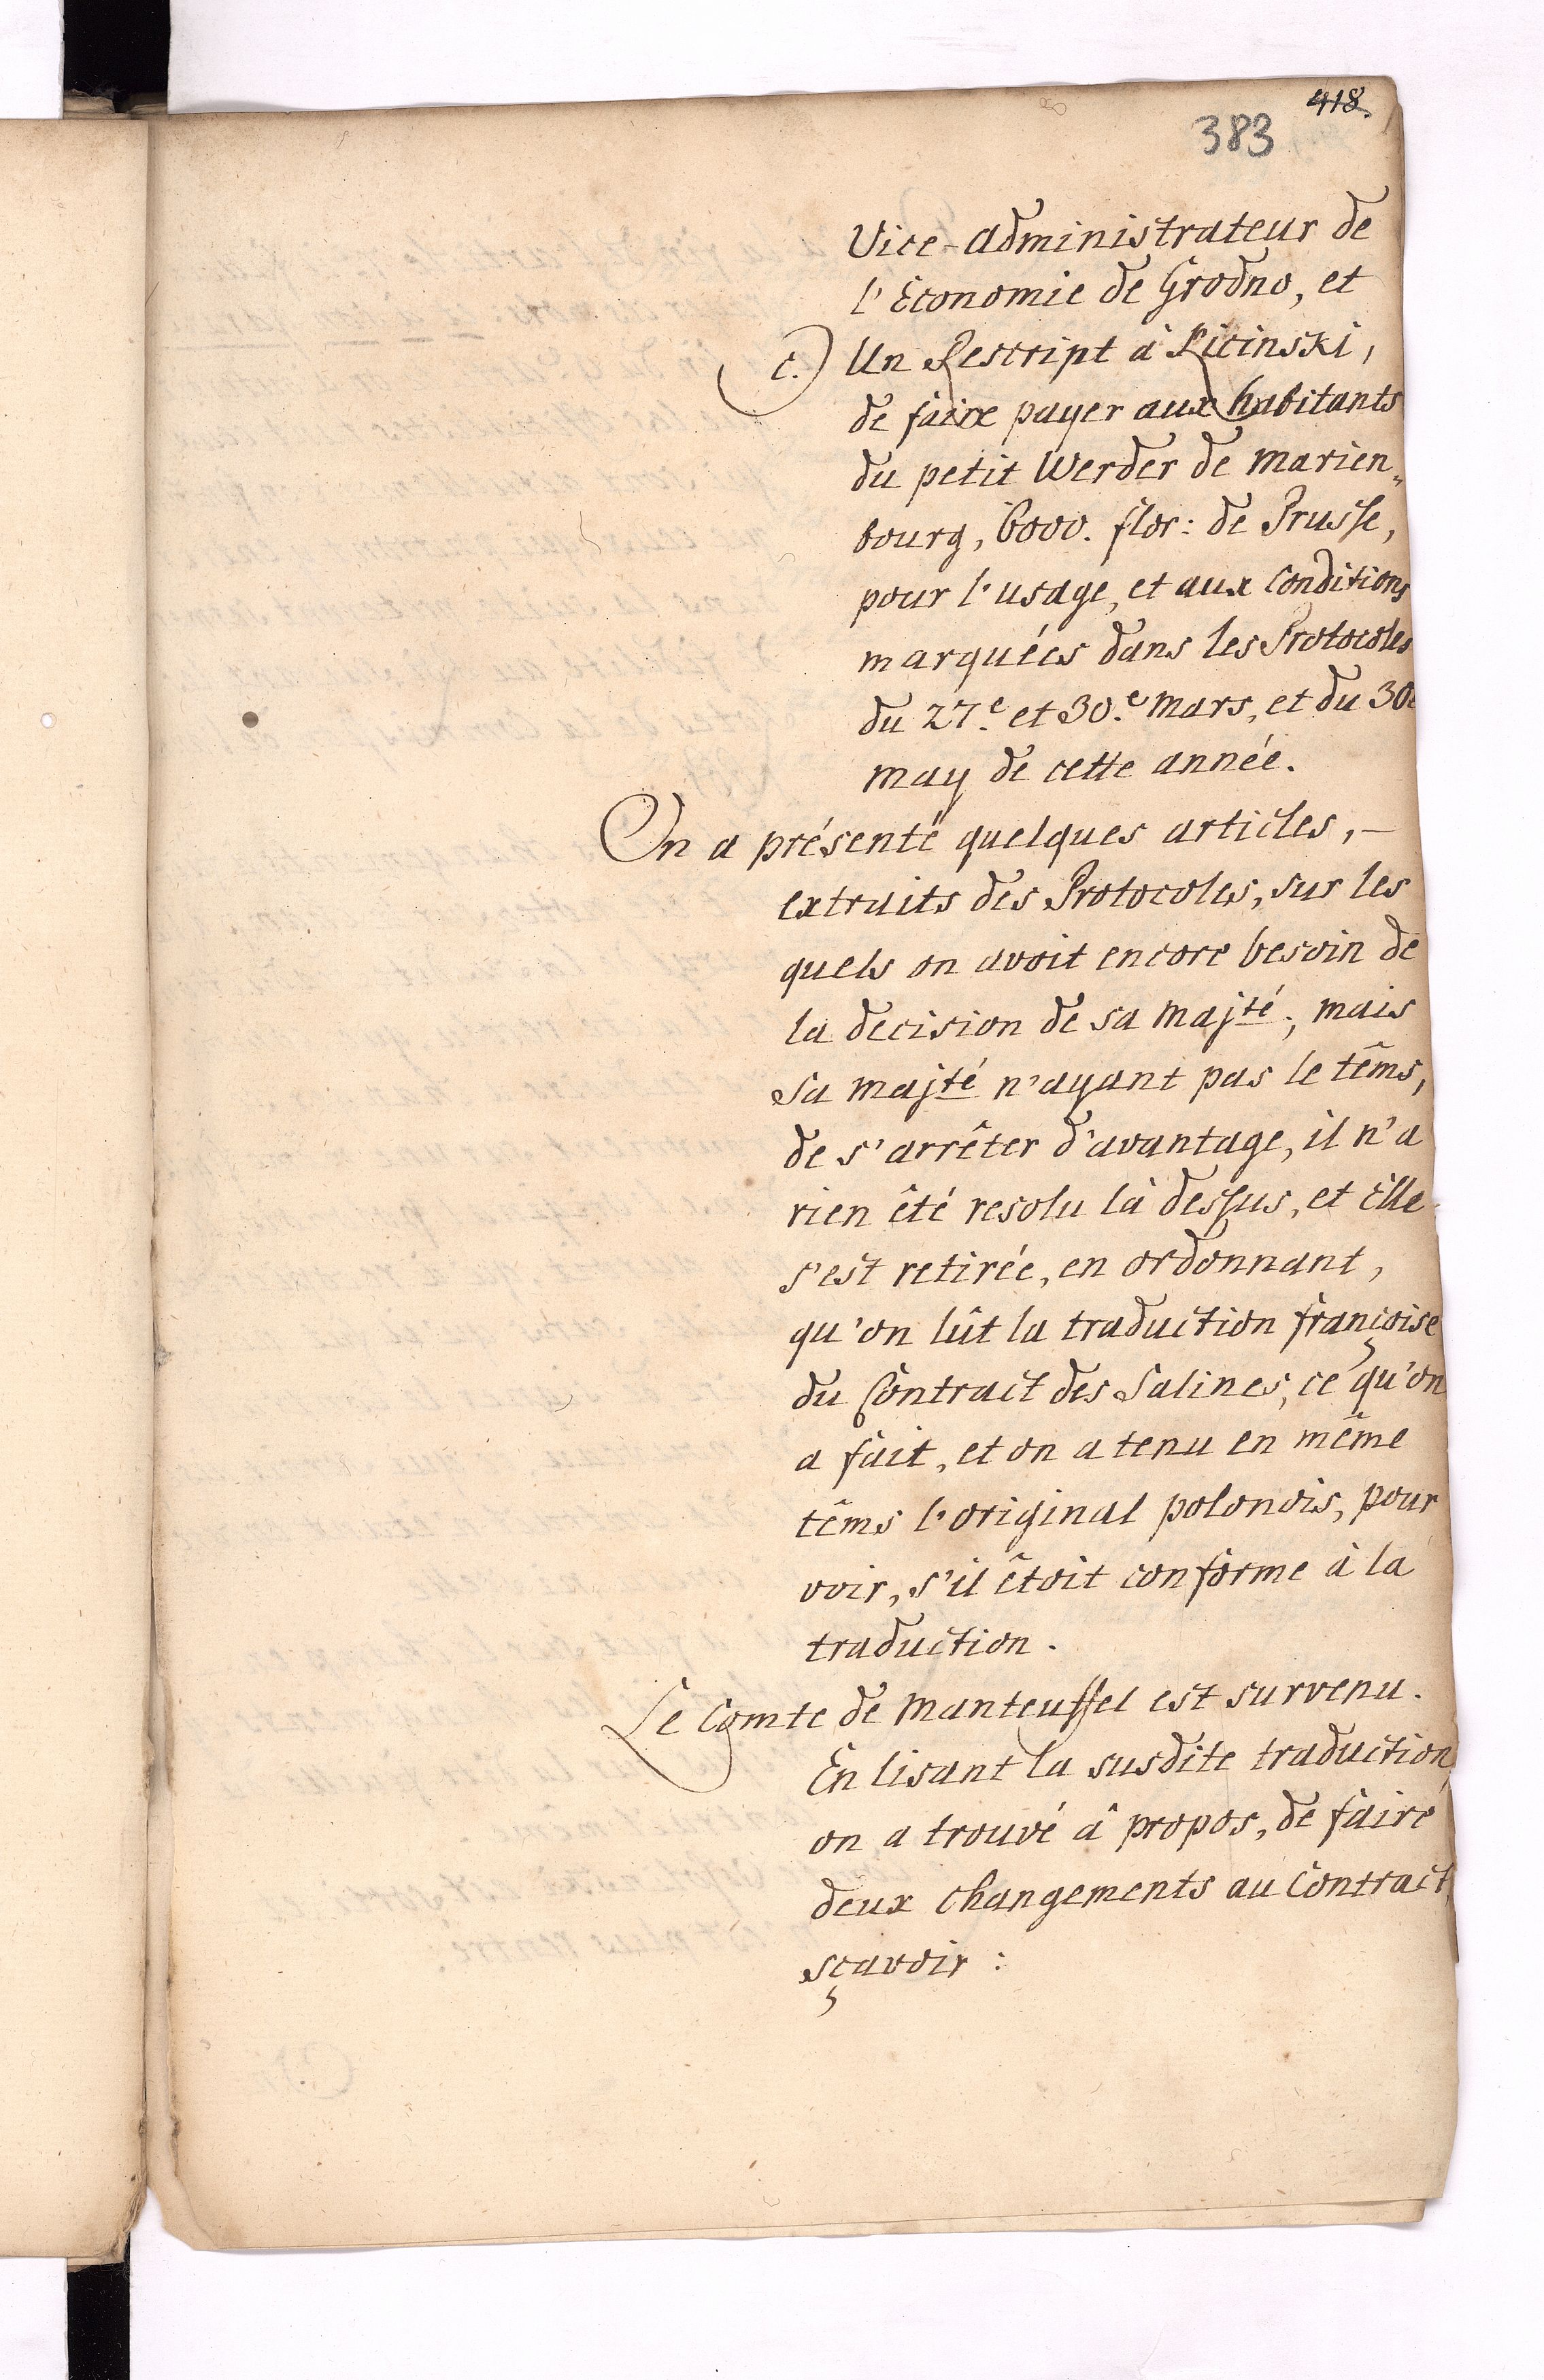 418.
383
Vice-administrateur de
l'Economie de Grodno, et
c.) Un Rescript à Licinski,
de faire payer aux habitants
du petit Werder de Marien„
bourg, 6000. flor: de Prusse,
pour l'usage, et aux conditions
marquées dans les Protocoles
du 27.e et 30.e Mars, et du 30e
may de cette année.
On a présenté quelques articles, —
extraits des Protocoles, sur les
quels on avoit encore besoin de
la decision de sa Majté; mais
Sa Majté n'ayant pas le têms,
de s'arrêter d'avantage, il n'a
rien êté resolu là dessus, et Elle
s'est retirée, en ordonnant,
qu'on lût la traduction françoise
du Contract des Salines, ce qu'on
a fait, et on a tenu en même
têms l'original polonois, pour
voir, s'il êtoit conforme à la
traduction.
Le Comte de Manteuffel est survenu.
En lisant la susdite traduction,
on a trouvé â propos, de faire
deux changements au Contract,
sçavoir :